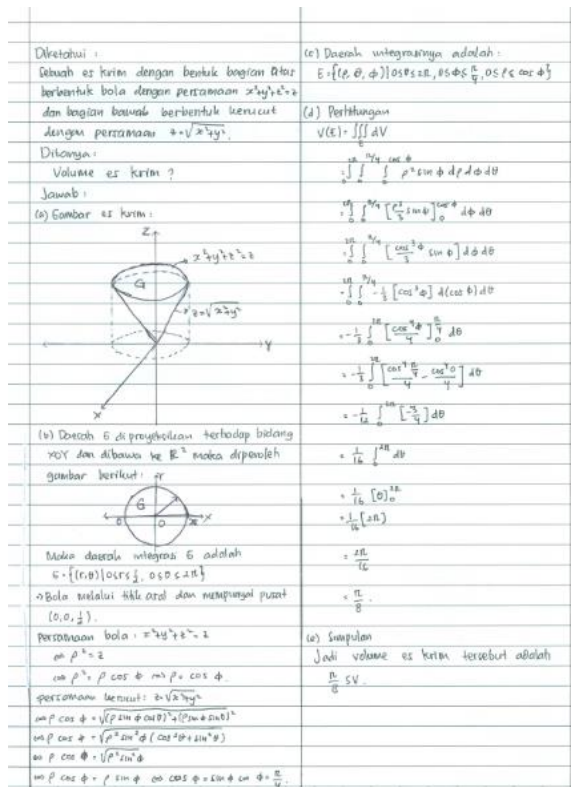 Diketahui :
Sebuah es krim dengan bentuk bagian atas
berbentuk bola dengan persamaan x²+y²+z²=z
dan bagian bawah berbentuk kerucut
dengan persamaan z=√x²+y².
Ditanya :
Volume es krim ?
Jawab :
(a) Gambar es krim :
Z
x²+y²+z²=z
G
z=√x²+y²
Y
X
(b) Daerah G diproyeksikan terhadap bidang
XOY dan dibawa ke R² maka diperoleh
gambar berikut :
G
0
X
Maka daerah integrasi G adalah
G={(r,θ)|0≤r≤½, 0≤θ≤2π}
→Bola melalui titik asal dan mempunyai pusat
(0,0,½).
Persamaan bola : x²+y²+z²=z
⇔ ρ²=z
⇔ ρ²=ρ cos φ ⇔ ρ=cos φ.
persamaan kerucut : z=√x²+y²
⇔ρ cos φ=√(ρ sin φ cos θ)²+(ρ sin φ sin θ)²
⇔ρ cos φ=√ρ² sin² φ (cos² θ+sin² θ)
⇔ ρ cos φ=√ρ² sin² φ
⇔ ρ cos φ=ρ sin φ ⇔ cos φ=sin φ ⇔ φ=π/4.
(c) Daerah integrasinya adalah :
E={(ρ,θ,φ)|0≤θ≤2π, 0≤φ≤π/4, 0≤ρ≤cos φ}
(d) Perhitungan
V(E)=∭_E dV
=∫₀^2π ∫₀^π/4 ∫₀^cos φ ρ² sin φ dρ dφ dθ
=∫₀^2π ∫₀^π/4 [ρ³/3 sin φ]₀^cos φ dφ dθ
=∫₀^2π ∫₀^π/4 [cos³ φ/3 sin φ] dφ dθ
=∫₀^2π ∫₀^π/4 -1/3 [cos³ φ] d(cos φ) dθ
=-1/3 ∫₀^2π [cos⁴ φ/4]₀^π/4 dθ
=-1/3 ∫₀^2π [cos⁴ π/4/4 - cos⁴ 0/4] dθ
=-1/12 ∫₀^2π [-3/4] dθ
=1/16 ∫₀^2π dθ
=1/16 [θ]₀^2π
=1/16 [2π]
=2π/16
=π/8.
(e) Simpulan
Jadi volume es krim tersebut adalah
π/8 SV.